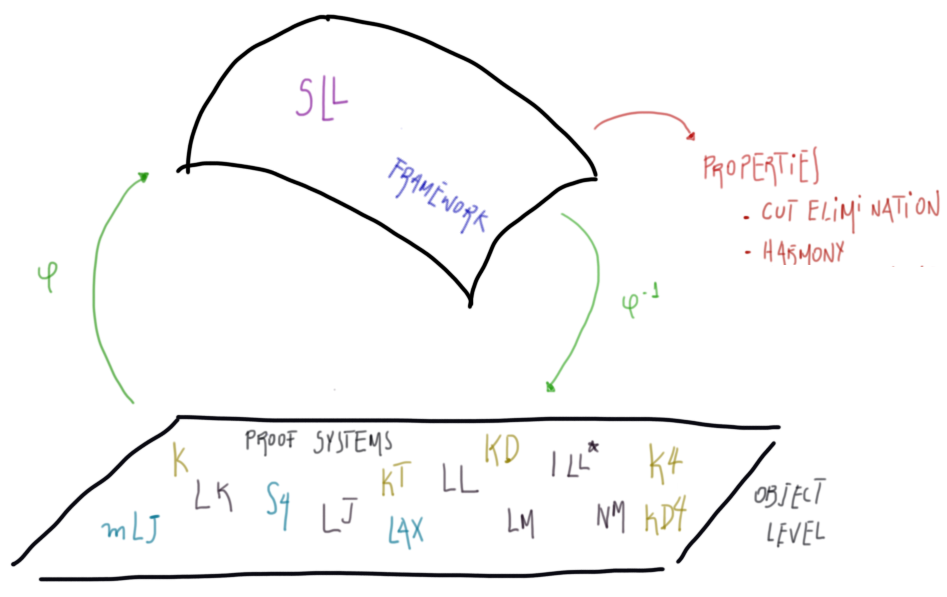 SLL
FRAMEWORK
PROPERTIES
- CUT ELIMINATION
- HARMONY
φ
φ-1
PROOF SYSTEMS
K
LK
S4
LJ
mLJ
KT
LAX
LL
KD
LM
ILL*
NM
K4
KD4
OBJECT
LEVEL